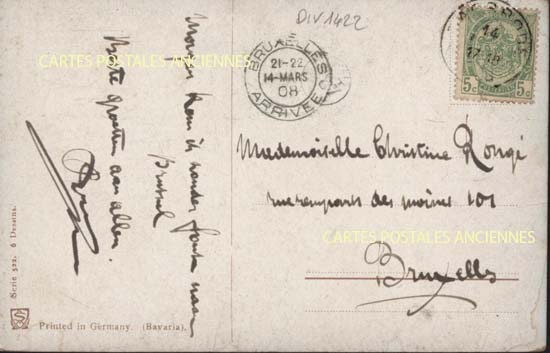 DIV1422
BRUXELLES
21-22
14-MARS
08
ARRIVÉE
14
5c 5c
CARTES POSTALES ANCIENNES
Morgen kom ik zonder fout naar
Brussel
Beste groeten aan allen.
Mademoiselle Christine Rongé
rue remparts des moines 101
Bruxelles
CARTES POSTALES ANCIENNES
Serie 522. 6 Dessins.
Printed in Germany. (Bavaria).